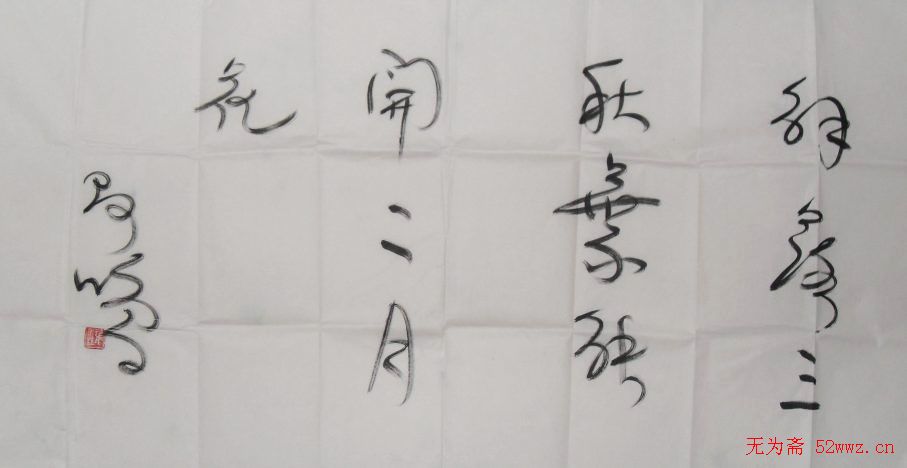 解落三
秋葉能
開二月
花
无为斋 52wwz.cn